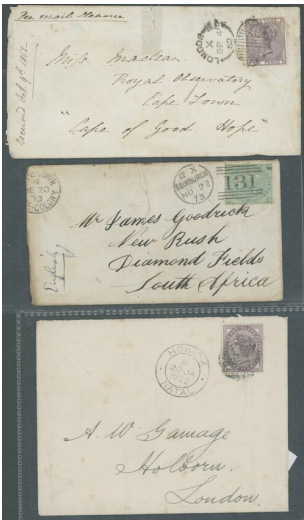 Per mail steamer
Miss Maclear
Royal Observatory
Cape Town
"Cape of Good Hope"
LONDON
X
SP 4
EDINBURGH
NO 22
73
131
Mr James Goodrick
New Rush
Diamond Fields
South Africa
HOWICK
JA
1900
NATAL
A. W Gamage
Holborn.
London.